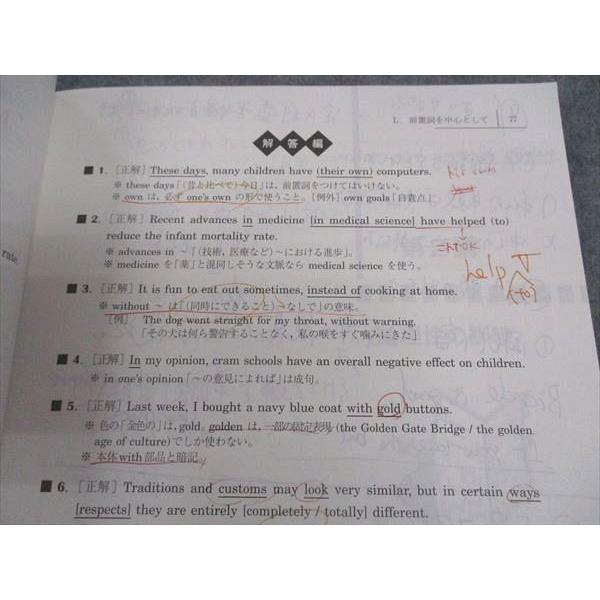 1. 前置詞を中心として 77
解答編
■ 1. [正解] These days, many children have (their own) computers.
※ these days「(昔と比べて)今日」は, 前置詞をつけてはいけない。
※ own は, 必ず one's own の形で使うこと。[例外] own goals「自責点」
■ 2. [正解] Recent advances in medicine [in medical science] have helped (to)
reduce the infant mortality rate.
※ advances in ～「(技術, 医療など)～における進歩」。
※ medicine を「薬」と混同しそうな文脈なら medical science を使う。
help V
(to)
rate.
■ 3. [正解] It is fun to eat out sometimes, instead of cooking at home.
※ without ～ は「(同時にできること)～なしで」の意味。
[例] The dog went straight for my throat, without warning.
「その犬は何ら警告することなく, 私の喉をすぐ噛みにきた」
■ 4. [正解] In my opinion, cram schools have an overall negative effect on children.
※ in one's opinion「～の意見によれば」は成句。
■ 5. [正解] Last week, I bought a navy blue coat with gold buttons.
※ 色の「金色の」は, gold。golden は, 一部の固定表現 (the Golden Gate Bridge / the golden
age of culture)でしか使わない。
※ 本体 with 部品と暗記。
■ 6. [正解] Traditions and customs may look very similar, but in certain ways
[respects] they are entirely [completely / totally] different.